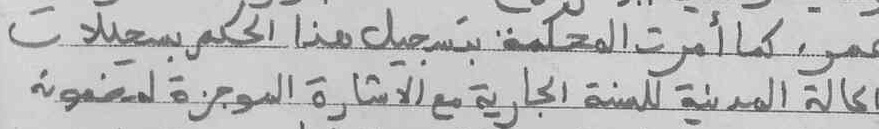 عمر، كما أمرت المحكمة بتسجيل هذا الحكم بسجلات
الحالة المدنية للسنة الجارية مع الاشارة الموجزة لمضمونه